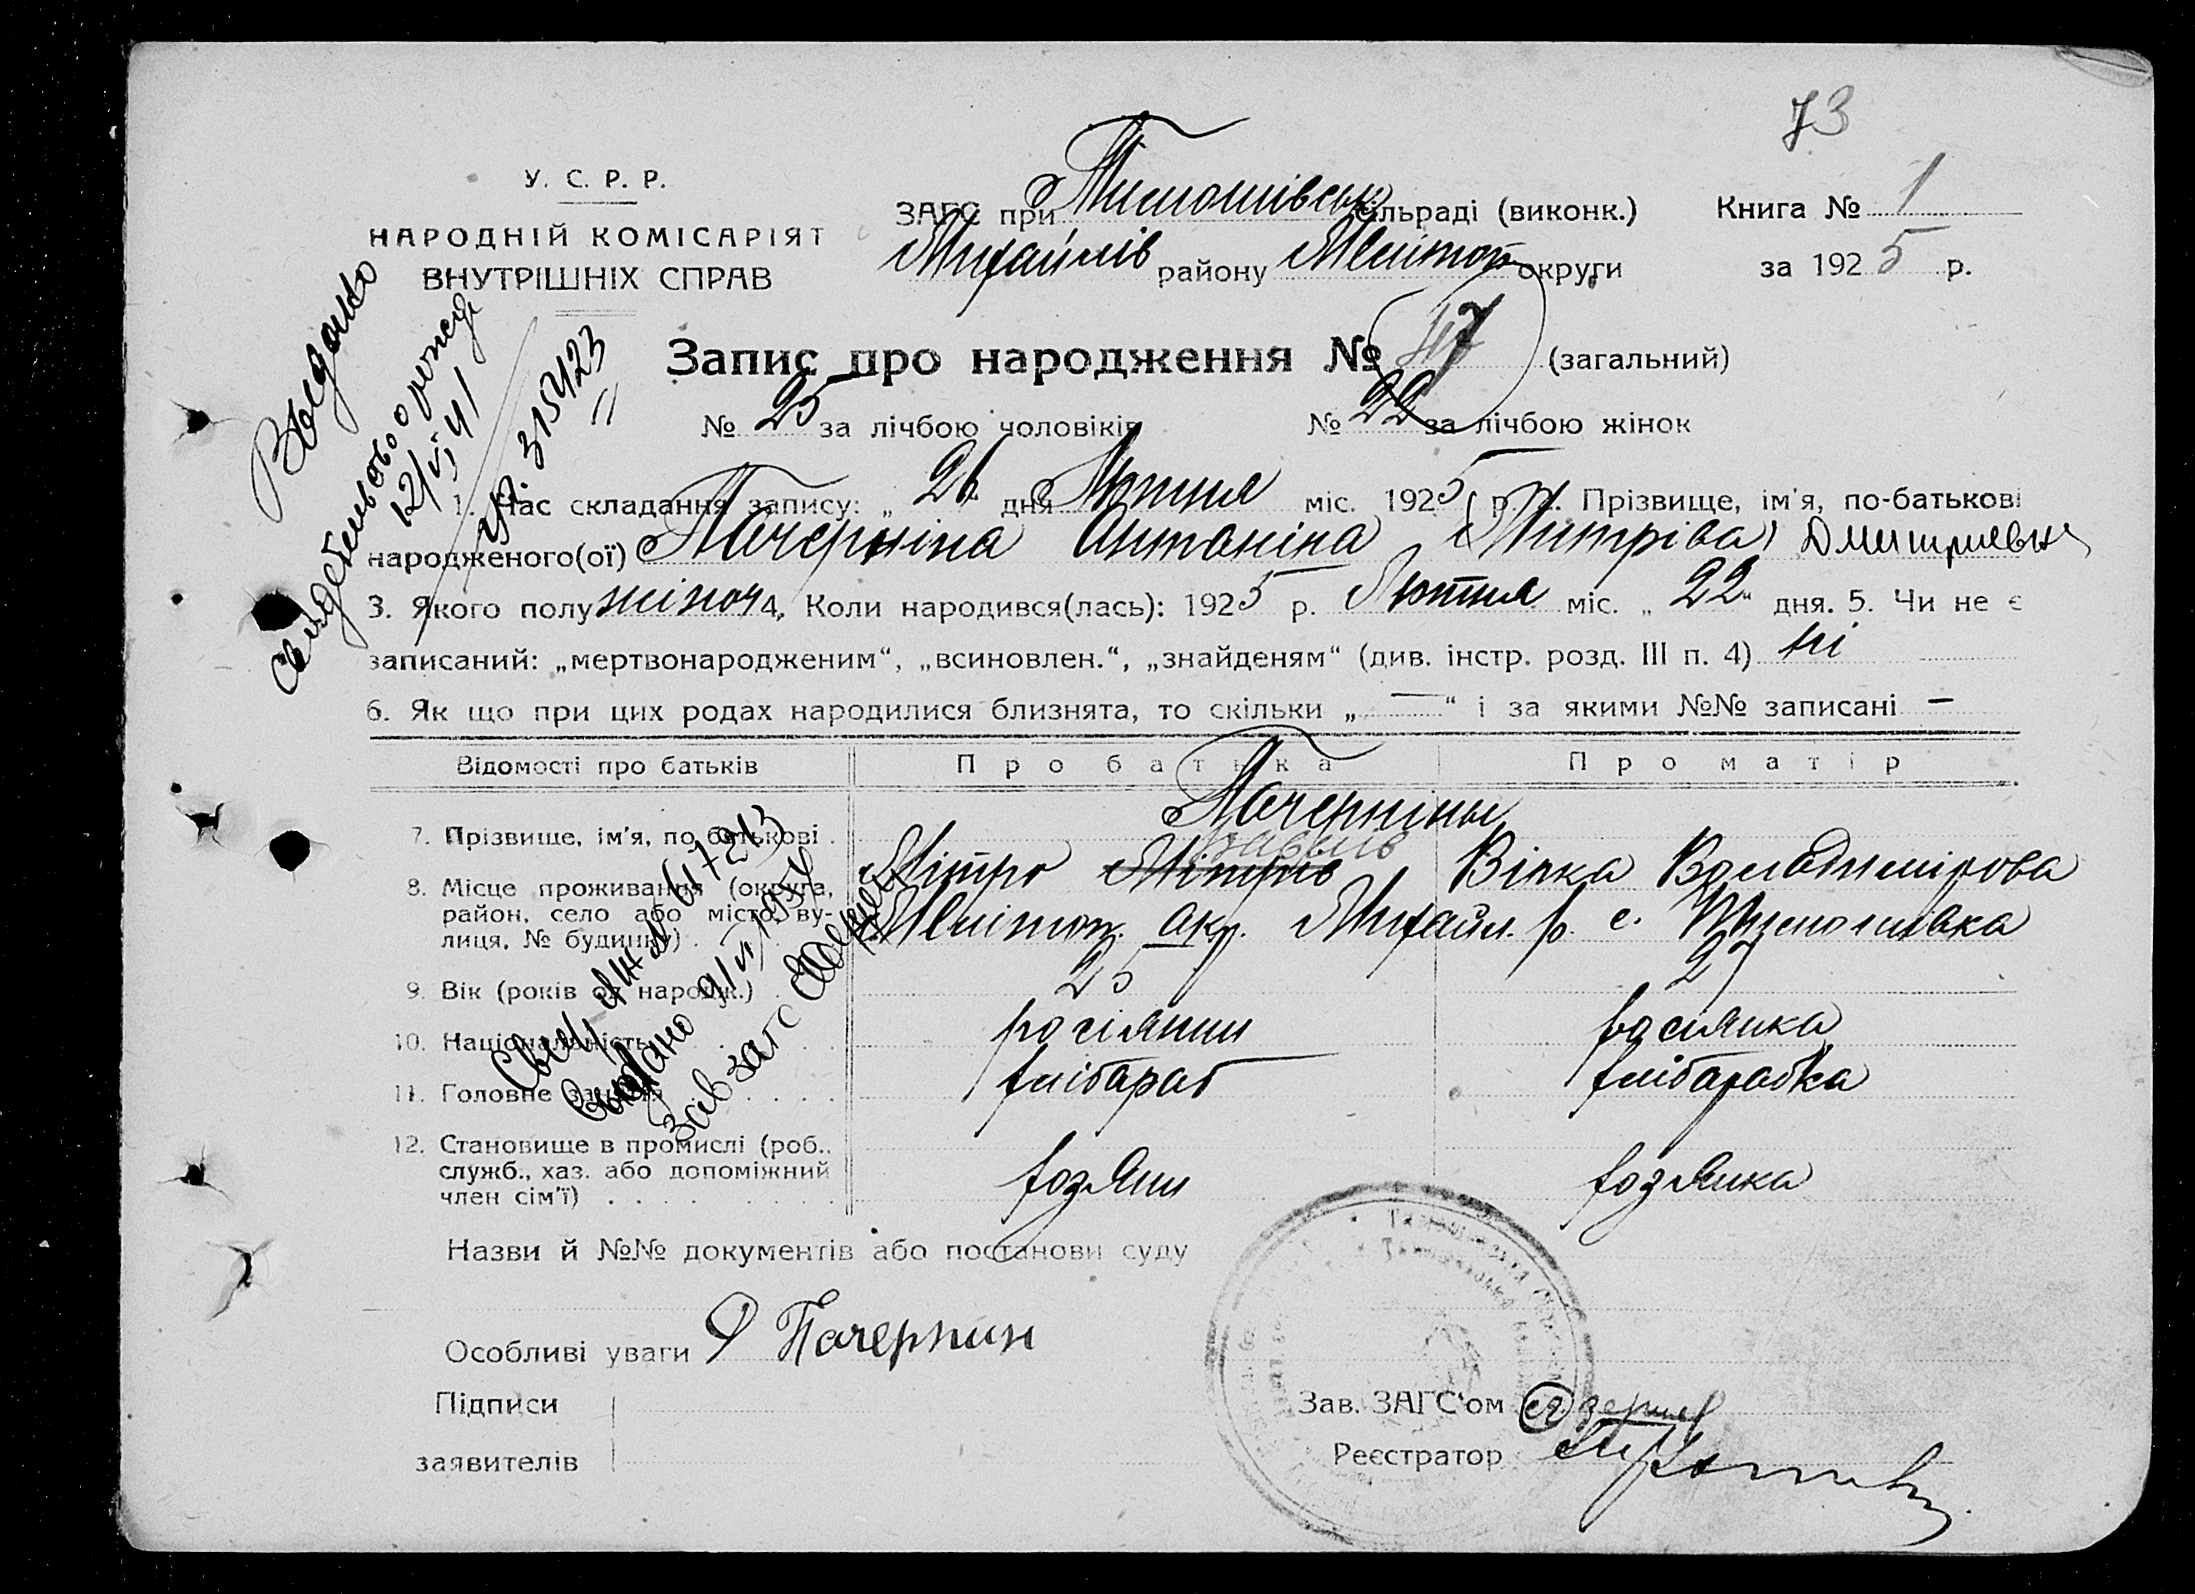 73
У. С. Р. Р.
НАРОДНІЙ КОМІСАРІЯТ
ВНУТРІШНІХ СПРАВ
ЗАГС при Тимошівськ сільраді (виконк.)
Книга № 1
Михайлів району Мелітоп округи
за 1925 р.
Запис про народження № 47 (загальний)
№ 25 за лічбою чоловіків № 22 за лічбою жінок
1. Час складання запису: „ 26 " дня Лютня міс. 1925 р. 2. Прізвище, ім'я, по-батькові
народженого(ої) Пачерніна Антоніна (Митріва)
3. Якого полу жіноч 4. Коли народився(лась): 1925 р. Лютня міс. „ 22 " дня. 5. Чи не є
записаний: „мертвонародженим“, „всиновлен.“, „знайденям“ (див. інстр. розд. III п. 4) ні
6. Як що при цих родах народилися близнята, то скільки „ — “ і за якими №№ записані –
Відомості про батьків
Про батька
Про матір
7. Прізвище, ім'я, по батькові
Пачернины
Мітро Вірка Володимірова
8. Місце проживання (округа,
район, село або місто, ву-
лиця, № будинку)
Мелітоп. окр. Михайл. р. с. Тимошівка
9. Вік (років од народж.)
25
27
10. Національність
росіянин
росіянка
11. Головне заняття
хлібараб
хлібарабка
12. Становище в промислі (роб.,
служб., хаз. або допоміжний
член сім'ї)
хозяин
хозяика
Назви й №№ документів або постанови суду
Особливі уваги Д Пачернин
Підписи
заявителів
Зав. ЗАГС'ом
Реєстратор
Выдано
свидетельство о рожд
12/VI 41
№ 315423